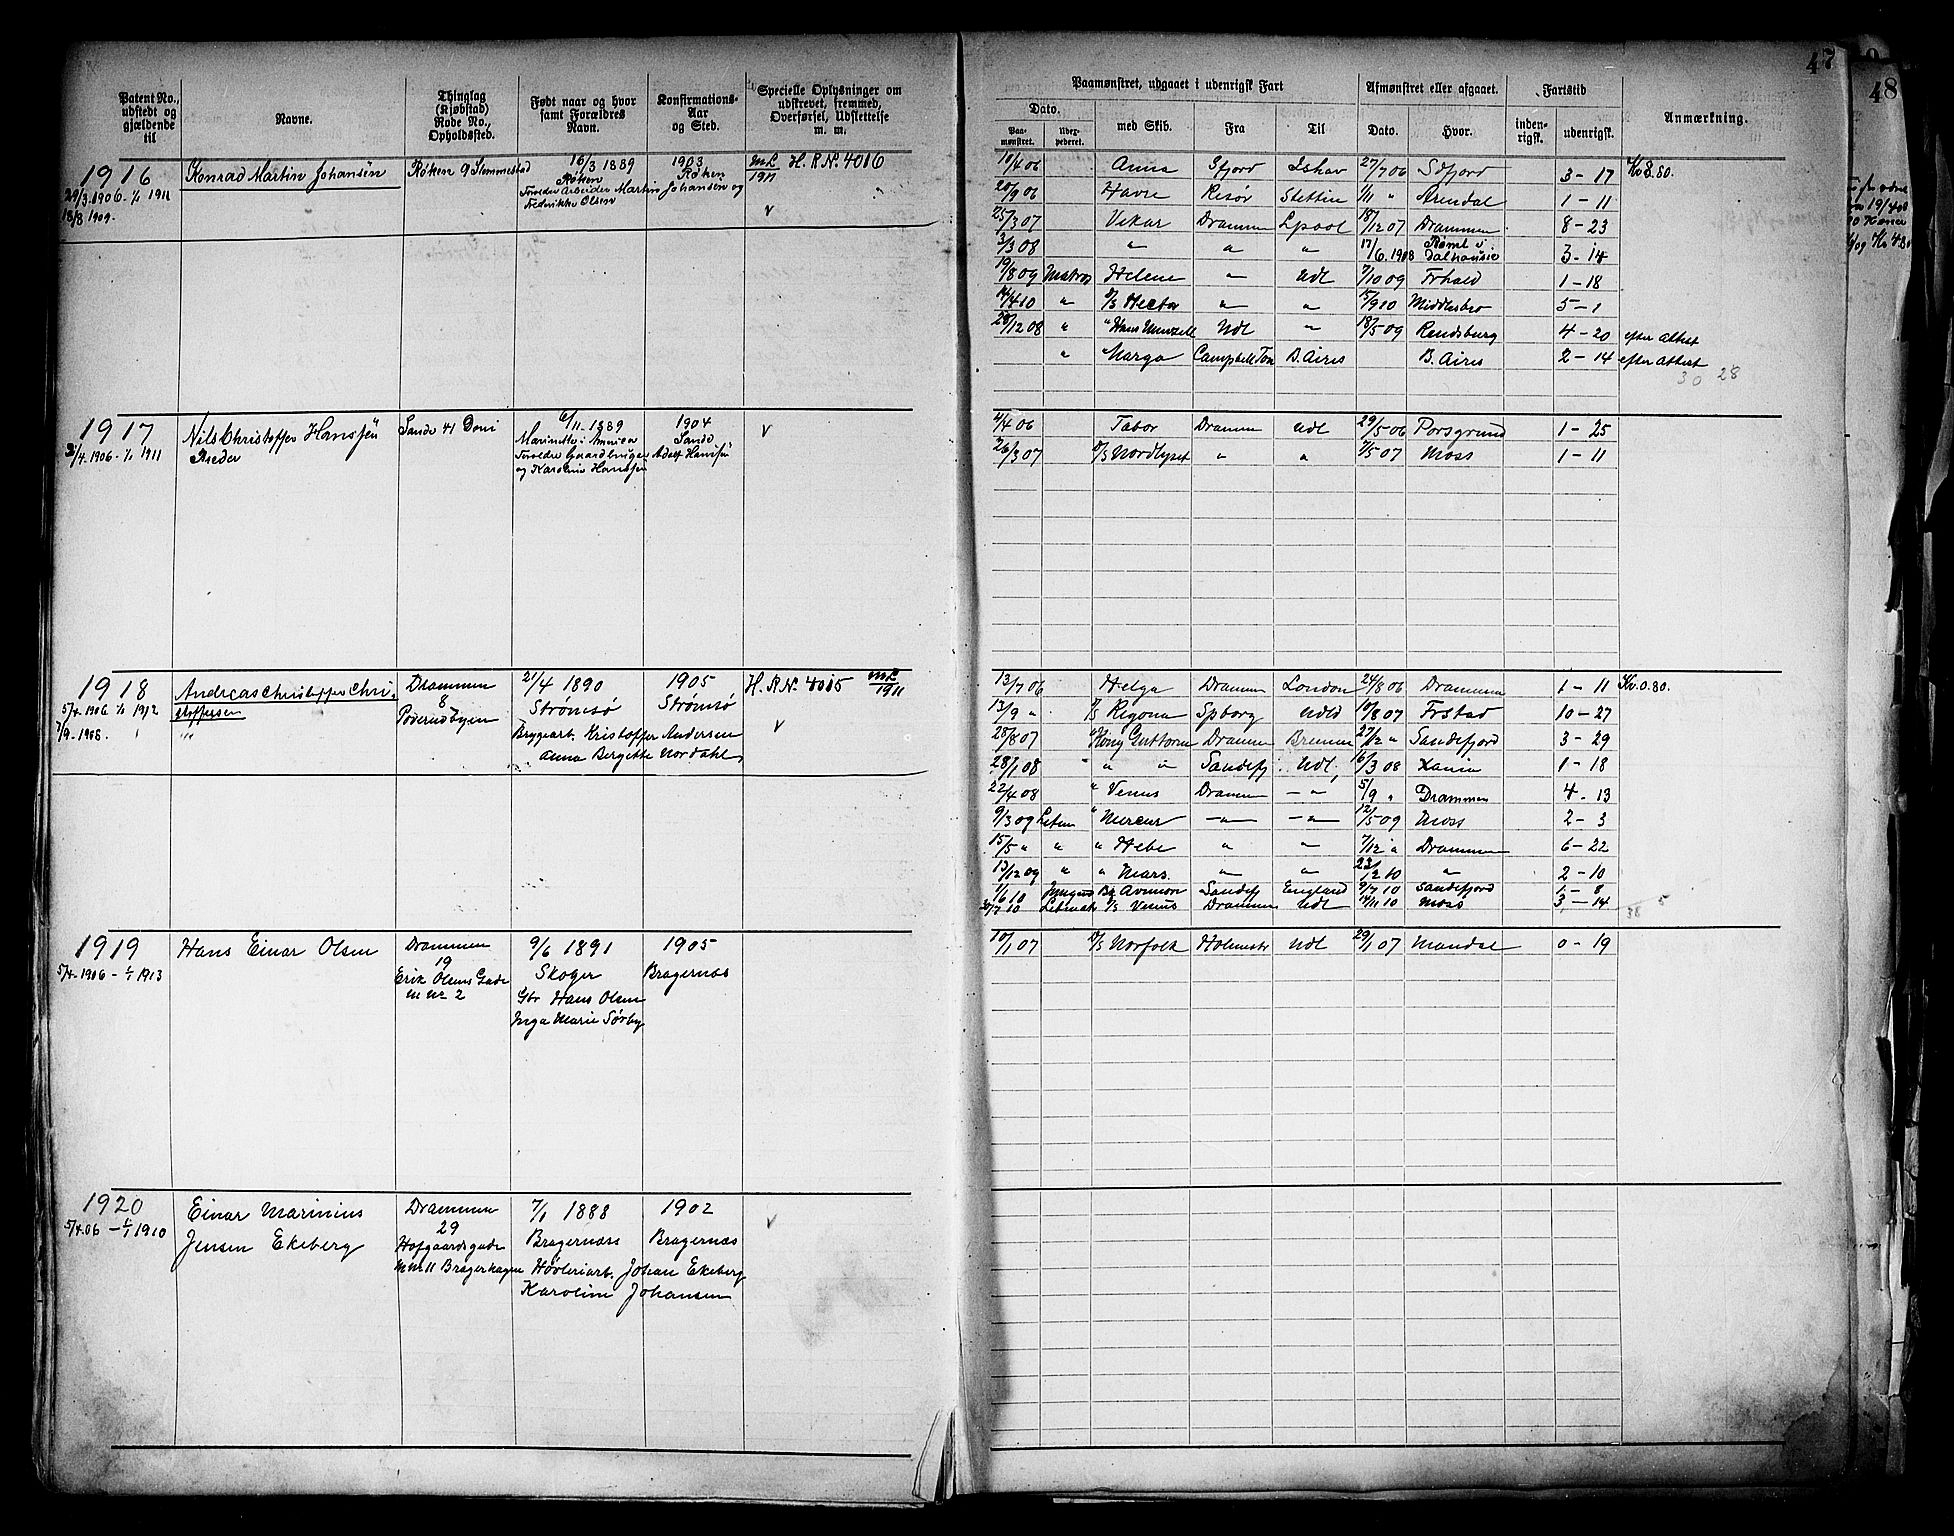 47
48
Patent No., udstedt og gjældende til
Navne.
Thinglag (Kjøbstad) Rode No., Opholdssted.
Født naar og hvor samt Forældres Navn.
Konfirmations-Aar og Sted.
Specielle Oplysninger om udskrevet, fremmed, Overførsel, Udslettelse m. m.
Paamønstret, udgaaet i udenrigsk Fart
Afmønstret eller afgaaet.
Fartstid
Anmærkning.
Dato.
Paa-mønstret.
med Skib.
Fra
Til
Dato.
Hvor.
inden-rigsk.
udenrigsk.
1916 Konrad Martin Johansen Røken 9 Slemmestad 16/3 1889 1903 mL H. R. Nº 4016
29/3 1906 - 1/1 1911 Røken Røken 1911
13/8 1909. Forældre Arbeider Martin Johansen og
Fredrikke Olsen v
10/4 06 Anna Sfjord Ishav 27/7 06 Sdfjord 3 - 17 Kv 0.80.
20/9 06 Havre Risør Stettin 1/11 " Arendal 1 - 11
25/3 07 Vikar Drammen Lpool 18/12 07 Drammen 8 - 23
3/3 08 " " " 17/6 1908 Rømt i Dalhousie 3 - 14
19/8 09 Matros Helene " Udl 7/10 09 Frhald 1 - 18
14/4 10 " D/S Hector " " 15/9 10 Middlesbro 5 - 1
29/12 08 " " Hans Udl " 18/5 09 Rendsburg 4 - 20 efter Attest
" " Marga Campbell Ton B. Aires B. Aires 2 - 14 efter Attest
30 28
1917 Nils Christoffer Hanssen Sande 41 6/11 - 1889 1904 v
1906 - 1/1 1911 Reeder Sande
Forældre Gaardbruger Adolf Hanssen
og Karoline Hanssen
4/4 06 Tabor Drammen Udl 29/5 06 Porsgrund 1 - 25
26/3 07 D/S Nordlyset " " 7/5 07 Moss 1 - 11
1918 Andreas Christoffer Chri- Drammen 21/4 1890 1905 H. R. Nº 4015 mL 1911
5/4 1906 1/1 1912 stoffersen 8 Strømsø Strømsø
7/9 - 1908. Brygearb. Kristoffer Andersen v
Anna Bergitte Nordahl
13/7 06 Helga Drammen London 24/8 06 Drammen 1 - 11 Kv. 0.80.
13/9 " D/S Regona Spborg Udld 10/8 07 Frstad 10 - 27
28/8 07 " Kong Guttorm Drammen Bremen 27/12 " Sandefjord 3 - 29
28/1 08 " " " Sandefj. Udl, 16/3 08 Xania 1 - 18
22/4 08 " Venus Drammen - " - 5/9 " Drammen 4 - 13
9/3 09 Letm " Mercur - " - - " - 12/5 09 Moss 2 - 3
15/5 " " " Hebe " " 7/12 " Drammen 6 - 22
13/12 09 " " Mars. " " 23/2 10 " 2 - 10
1/6 10 Sandefj England 9/7 10 Sandefjord 1 - 8
30/7 10 Letmatr D/S Venus Drammen Udl 14/11 10 Moss 3 - 14
38 5
1919 Hans Einar Olsen Drammen 9/6 1891 1905
5/4 - 1906 - 1/1 1913 19 Skoger Bragernæs
Erik Olsens Gade Gbr Hans Olsen
m nr 2 Inga Marie Sørby
10/1 07 D/S Norfolk Holmestr Udl 29/1 07 Mandal 0 - 19
1920 Einar Marinius Drammen 7/1 1888 1902 v
5/4 06 - 1/1 1910 Jensen Ekeberg 29 Bragernæs Bragernæs
Hofgaardsgade
m nr 11 Bragerhagen Høvleriarb. Johan Ekeberg
Karoline Johansen